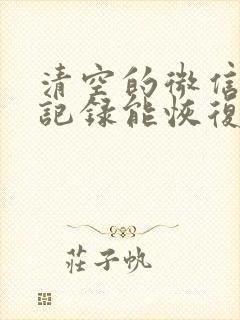 清空的微信
記錄能恢復
莊子帆